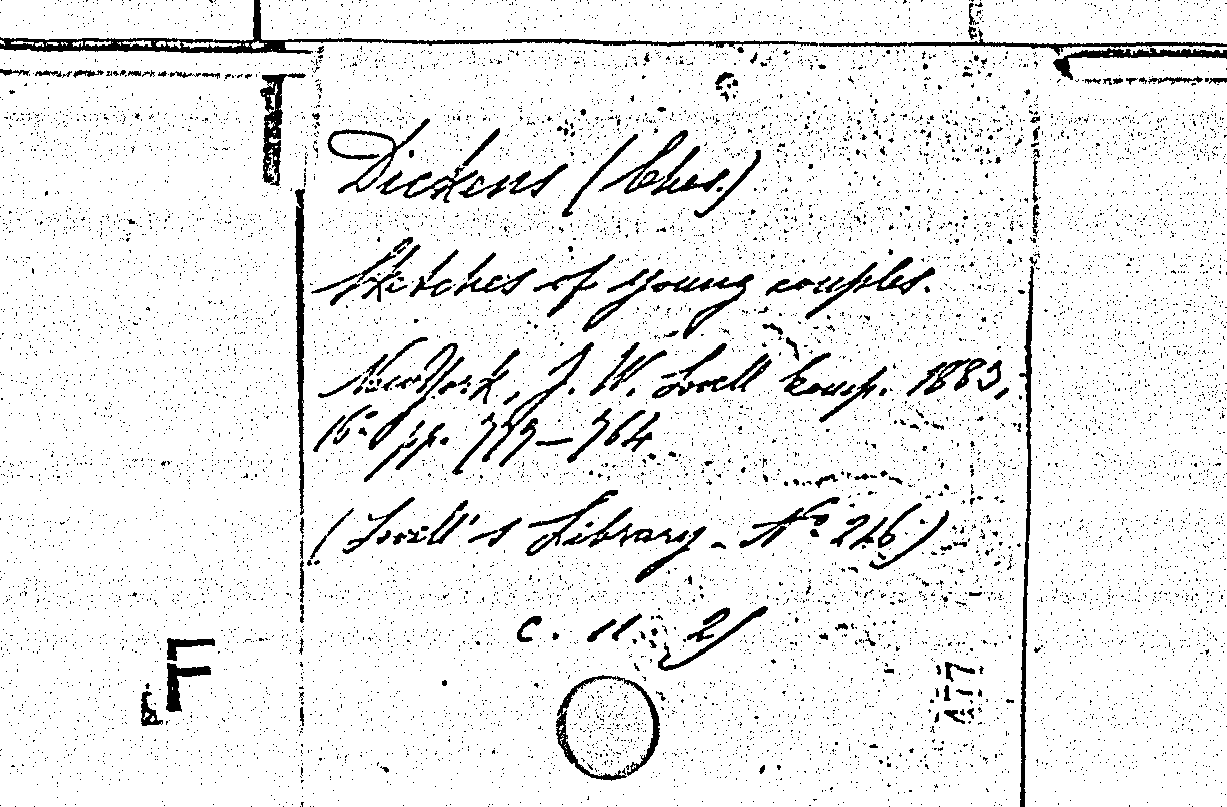 Dickens (Chs.)
Sketches of young couples.
New York, J. W. Lovell Comp. 1883,
16º pp. 719—764
(Lovell's Library - Nº 216)
c. 11. 25
F
A77